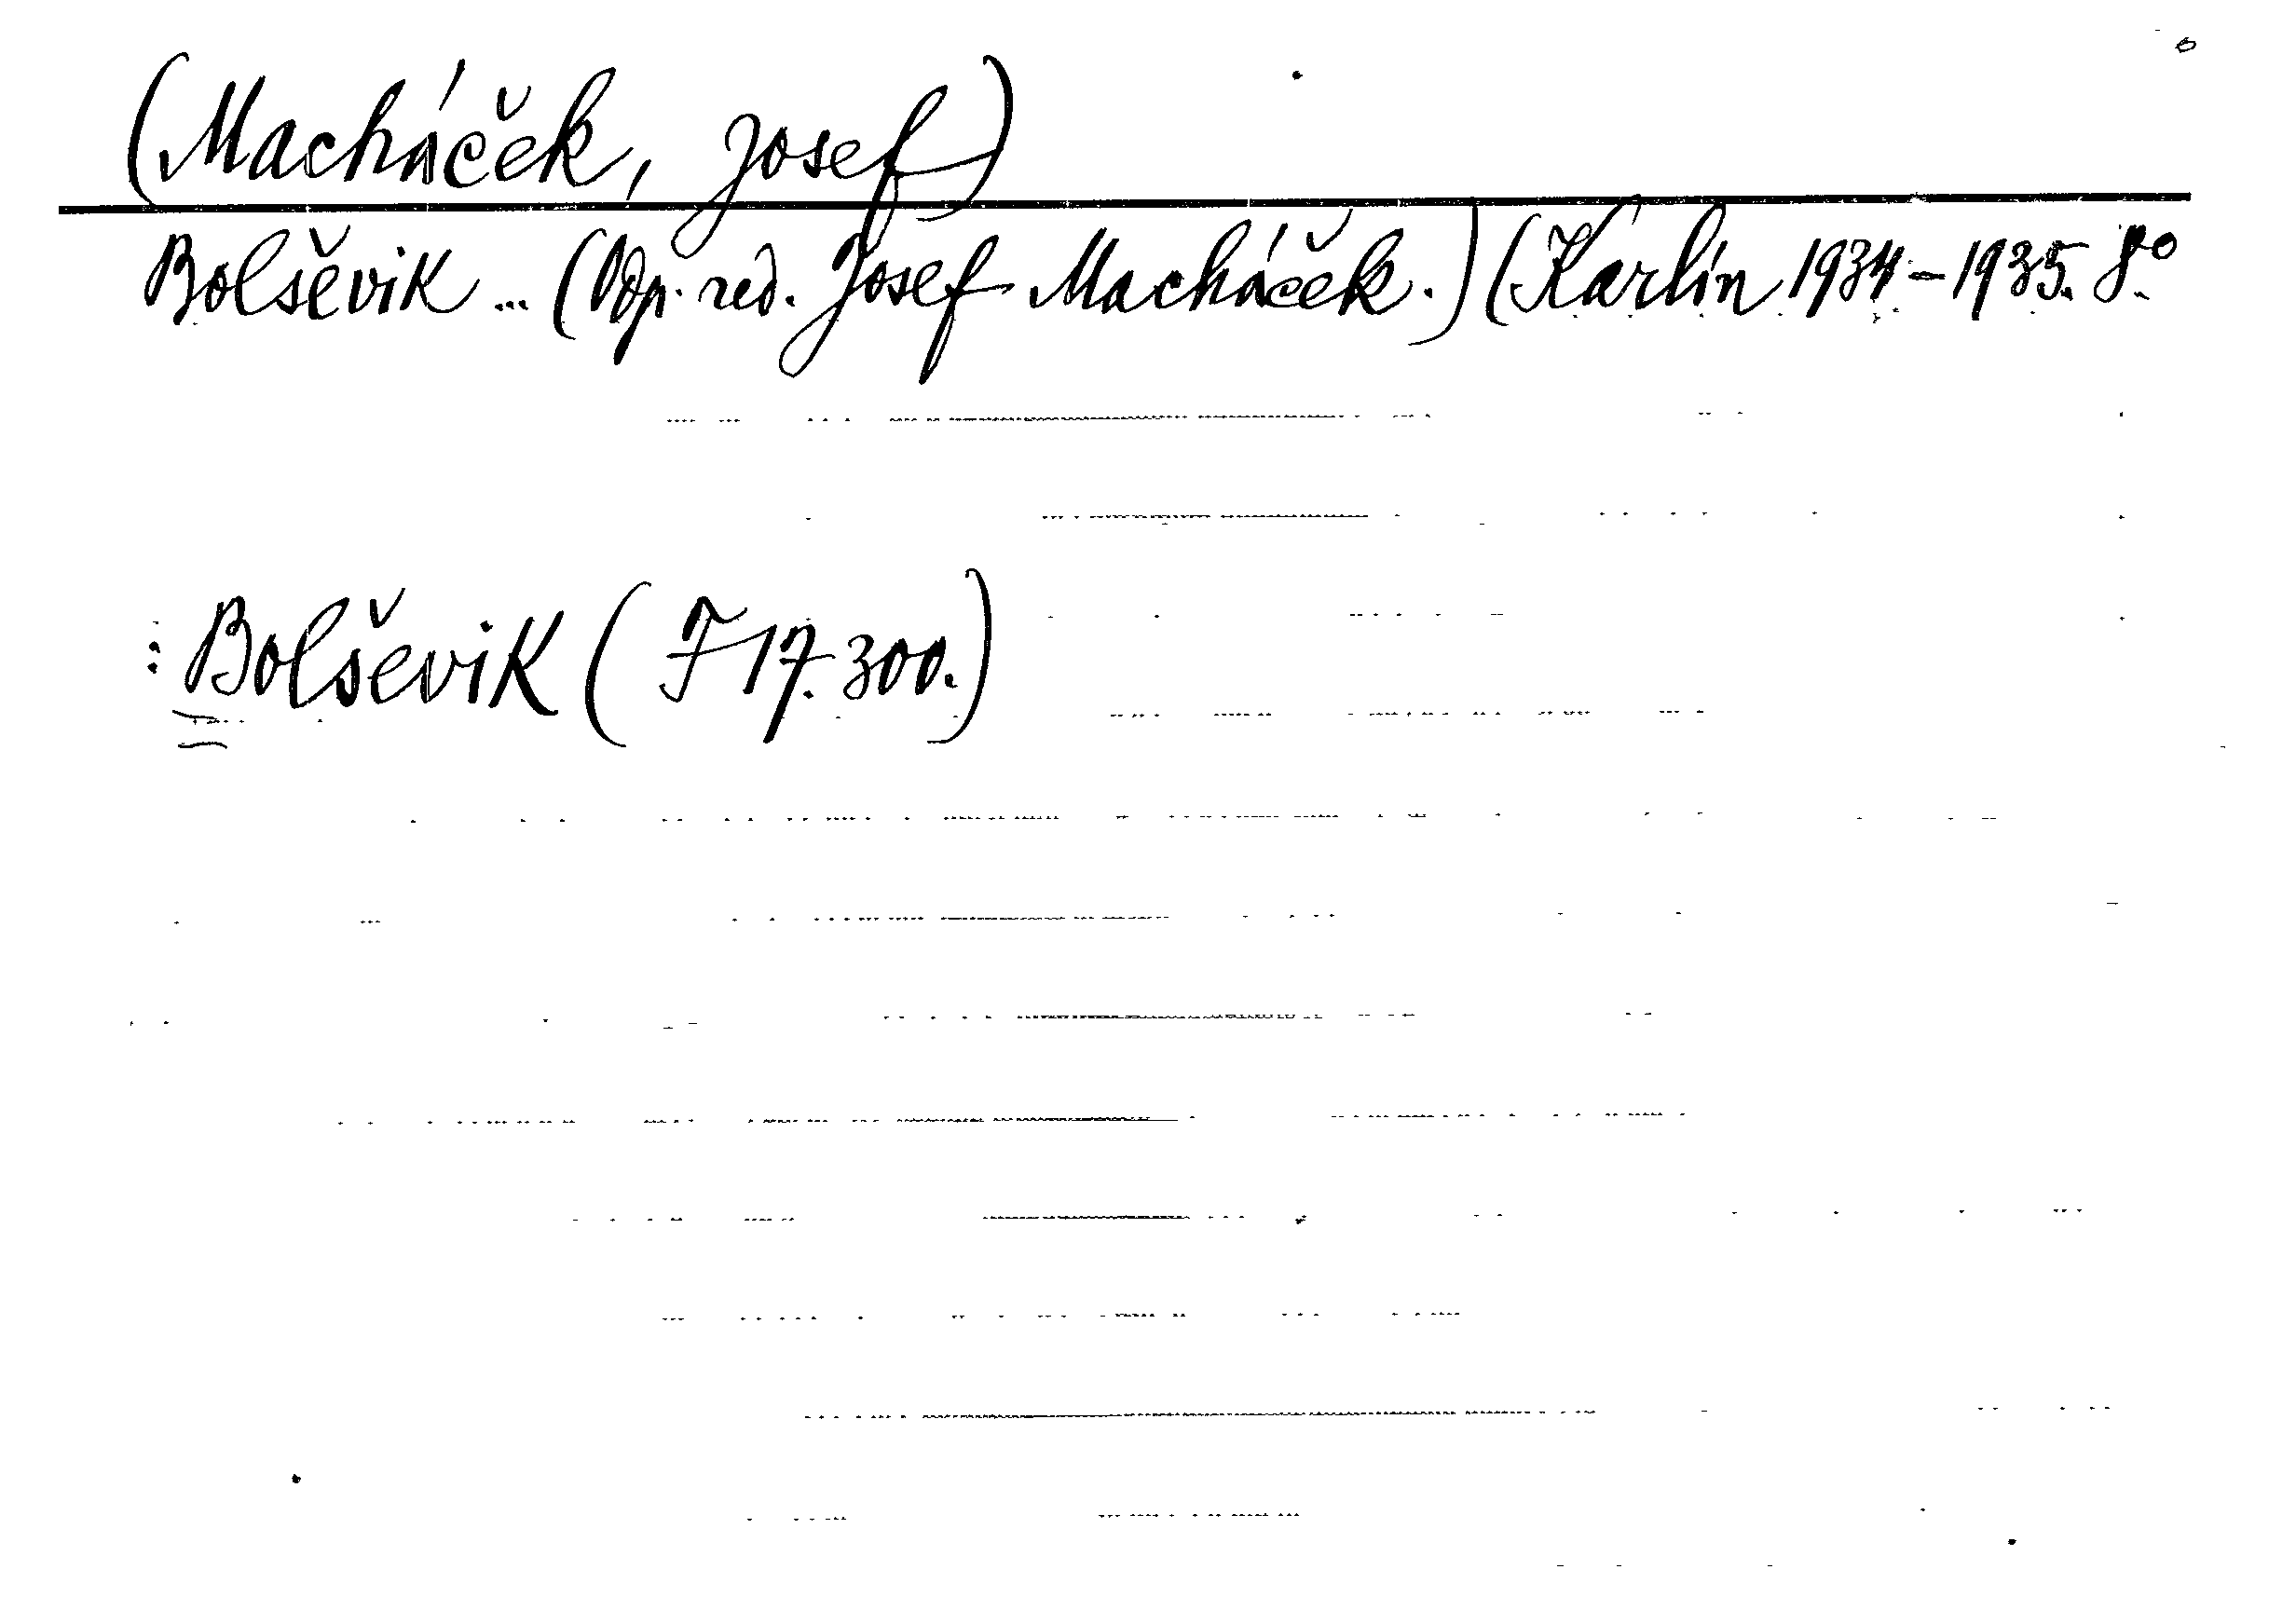 (Macháček, Josef)
Bolševik ... (Odp. red. Josef Macháček.) (Karlín 1934-1935. 8°.
: Bolševik ( F 17.300.)